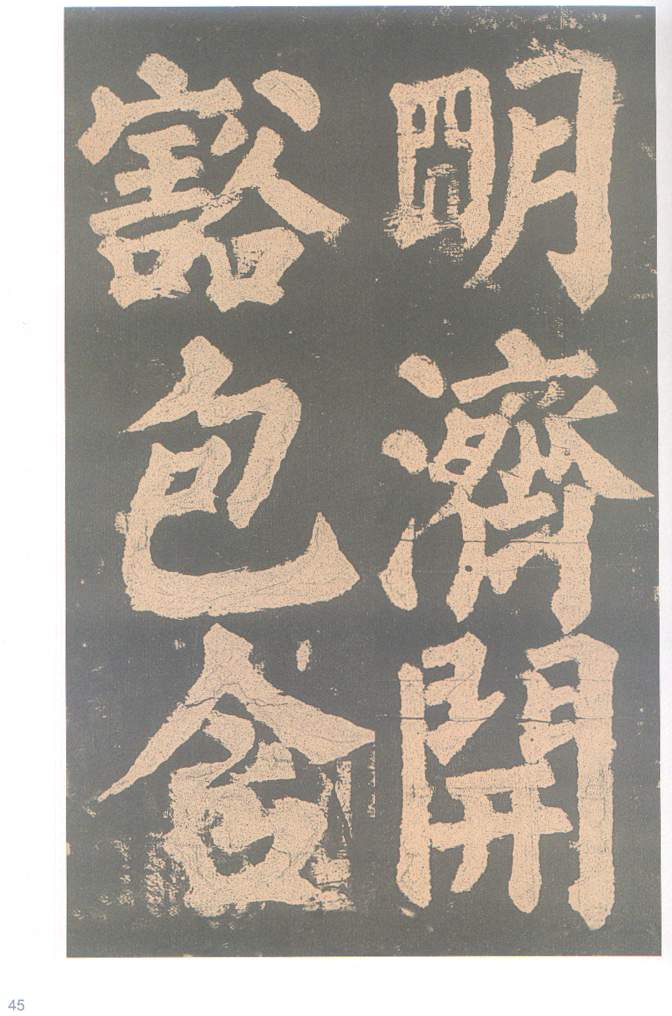 明濟開
豁包含
45